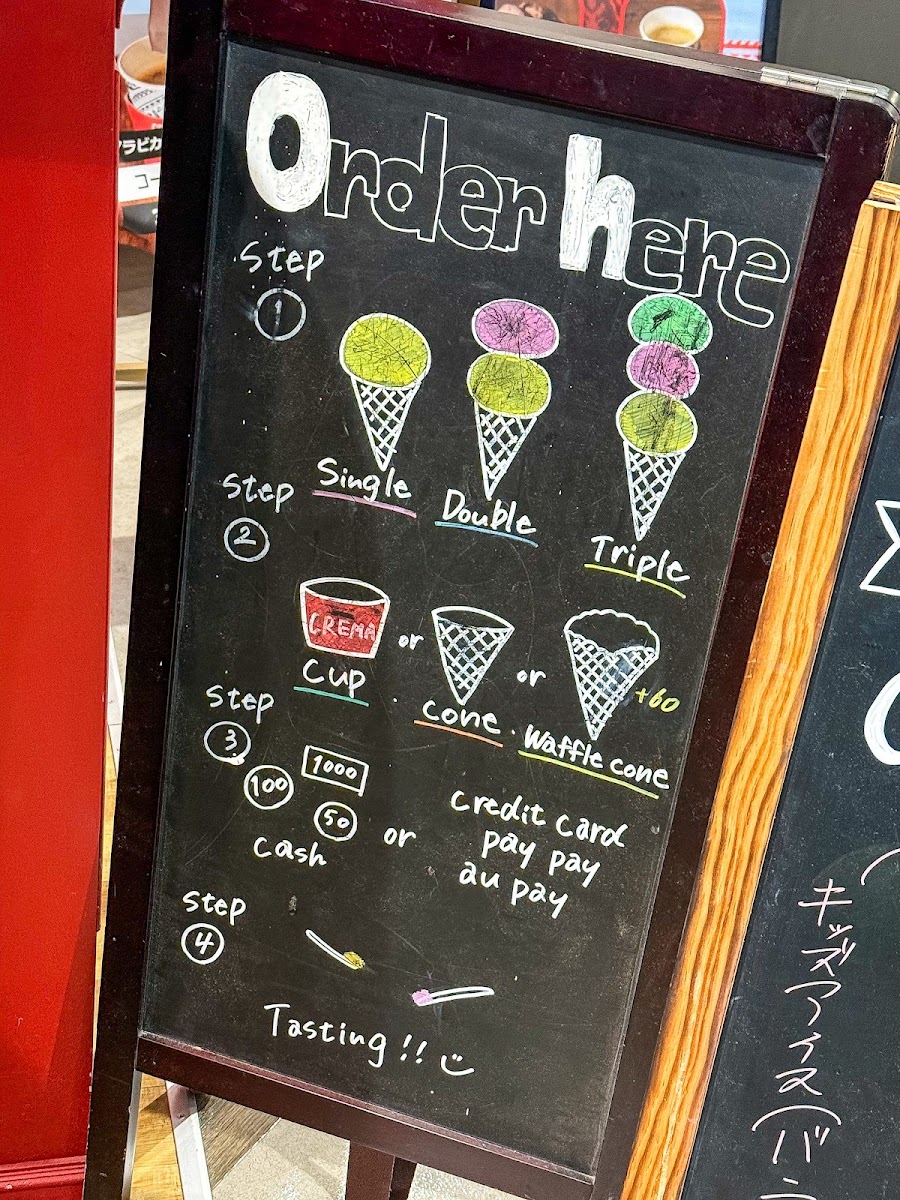 Order here
Step
1
Single
Double
Triple
Step
2
CREMA
Cup
or
cone
or
Waffle cone
+60
Step
3
100
1000
50
cash
or
credit card
pay pay
au pay
Step
4
Tasting!!
アラビカ
コー
キッズアイス
(バ